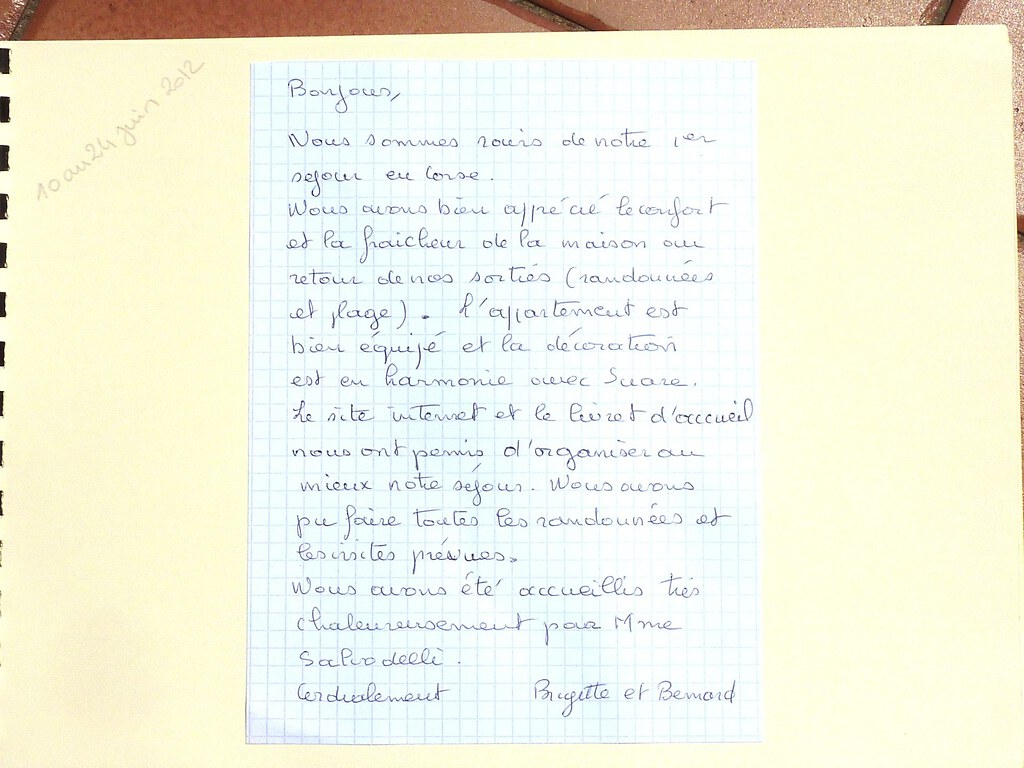 10 au 24 juin 2012
Bonjour,
Nous sommes ravis de notre 1er
sejour en Corse.
Nous avons bien apprécié le confort
et la fraicheur de la maison au
retour de nos sorties (randonnées
et plage). L'appartement est
bien équipé et la décoration
est en harmonie avec Suare.
Le site internet et le livret d'accueil
nous ont permis d'organiser au
mieux notre séjour. Nous avons
pu faire toutes les randonnées et
les visites prévues.
Nous avons été accueillis très
chaleureusement par Mme
Salvodelli.
Cordialement Brigitte et Bernard